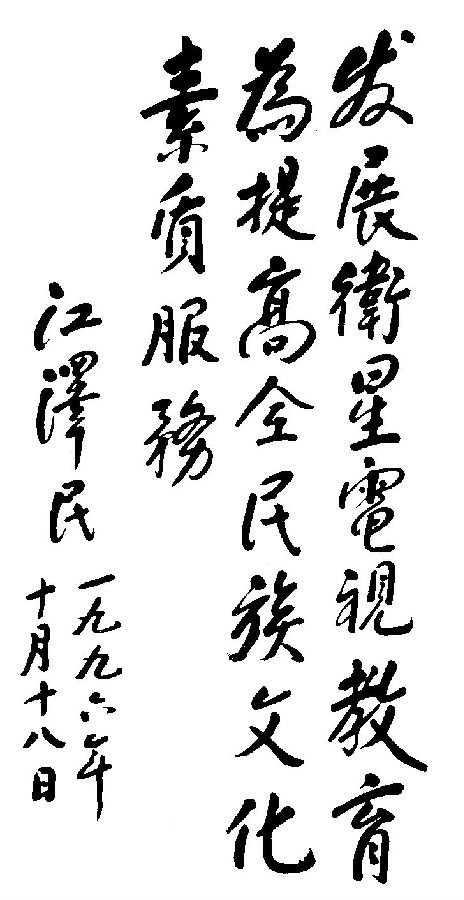 发展衛星電視教育
為提高全民族文化
素质服務
江澤民
一九九六年
十月十八日